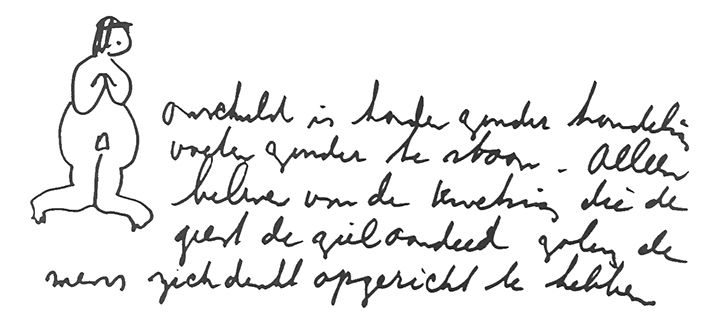 onschuld is handen zonder handeling
voeten zonder te staan. Alleen
van de kwetsing die de
geest de ziel aandeed zolang de
mens zich denkt opgericht te hebben